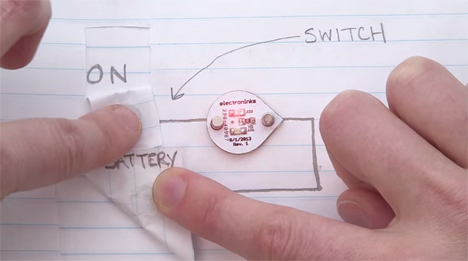 SWITCH
ON
electroninks
8/1/2013
Rev. 1
BATTERY